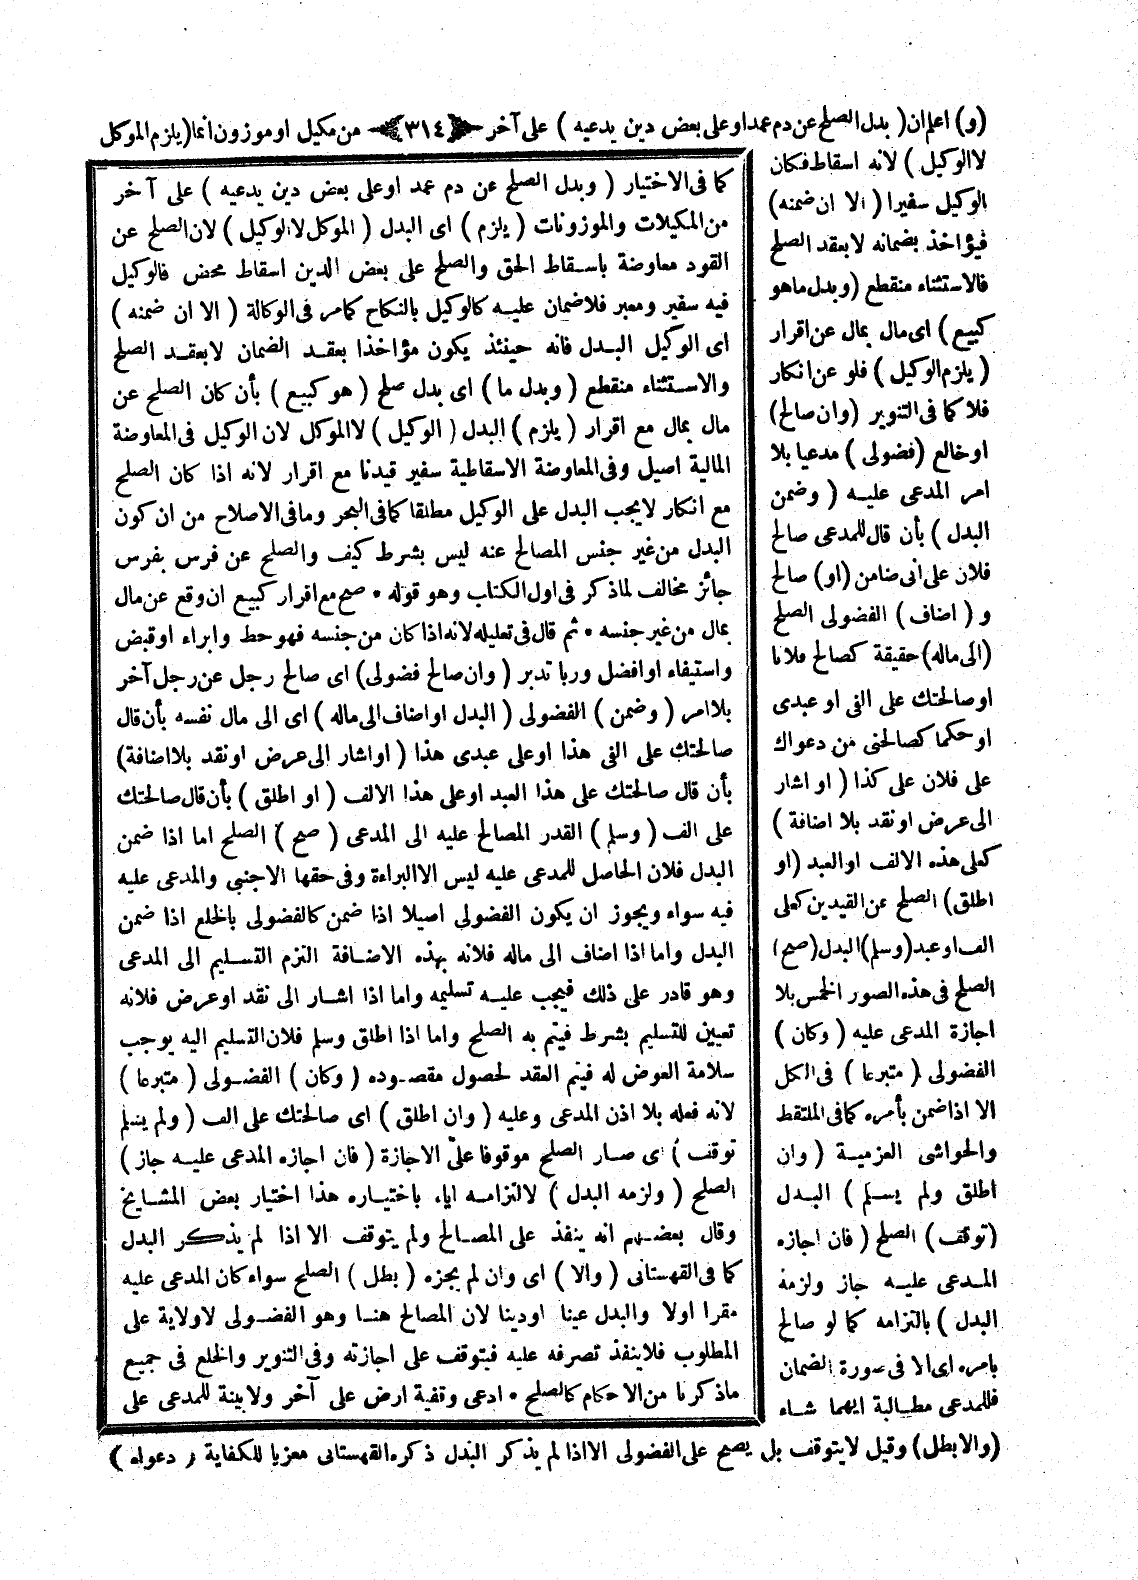 (و) اعلم ان ( بدل الصلح عن دم عمد او على بعض دين يدعيه ) على آخر ﴿ ٣١٤ ﴾ من مكيل او موزون انما ( يلزم الموكل
لا الوكيل ) لانه اسقاط فكان
الوكيل سفيرا ( الا ان ضمنه)
فيؤاخذ بضمانه لا بعقد الصلح
فالاستثناء منقطع (وبدل ما هو
كبيع ) اى مال بمال عن اقرار
( يلزم الوكيل ) فلو عن انكار
فلا كما فى التنوير (وان صالح)
او خالع (فضولى ) مدعيا بلا
امر المدعى عليه ( وضمن
البدل ) بأن قال للمدعى صالح
فلان على انى ضامن (او) صالح
و ( اضاف ) الفضولى الصلح
(الى ماله) حقيقة كصالح فلانا
او صالحتك على الفى او عبدى
او حكما كصالحنى من دعواك
على فلان على كذا ( او اشار
الى عرض او نقد بلا اضافة )
كعلى هذه الالف او العبد (او
اطلق) الصلح عن القيدين كعلى
الف او عبد (وسلم) البدل (صح)
الصلح فى هذه الصور الخمس بلا
اجازة المدعى عليه ( وكان )
الفضولى ( متبرعا ) فى الكل
الا اذا ضمن بأمره كما فى الملتقط
والحواشى العزمية ( وان
اطلق ولم يسلم ) البدل
(توقف) الصلح ( فان اجازه
المدعى عليه جاز ولزمه
البدل ) بالتزامه كما لو صالح
بامره اى الا فى صورة الضمان
فللمدعى مطالبة ايهما شاء
(والا بطل) وقيل لا يتوقف بل يصح على الفضولى الا اذا لم يذكر البدل ذكره القهستانى معزيا للكفاية ( دعواه )
كما فى الاختيار ( وبدل الصلح عن دم عمد او على بعض دين يدعيه ) على آخر
من المكيلات والموزونات ( يلزم ) اى البدل ( الموكل لا الوكيل ) لان الصلح عن
القود معاوضة باسقاط الحق والصلح على بعض الدين اسقاط محض فالوكيل
فيه سفير ومعبر فلا ضمان عليه كالوكيل بالنكاح كما مر فى الوكالة ( الا ان ضمنه )
اى الوكيل البدل فانه حينئذ يكون مؤاخذا بعقد الضمان لا بعقد الصلح
والاستثناء منقطع ( وبدل ما ) اى بدل صلح ( هو كبيع ) بأن كان الصلح عن
مال بمال مع اقرار ( يلزم ) البدل ( الوكيل ) لا الموكل لان الوكيل فى المعاوضة
المالية اصيل وفى المعاوضة الاسقاطية سفير قيدنا مع اقرار لانه اذا كان الصلح
مع انكار لا يجب البدل على الوكيل مطلقا كما فى البحر وما فى الاصلاح من ان كون
البدل من غير جنس المصالح عنه ليس بشرط كيف والصلح عن فرس بفرس
جائز مخالف لما ذكر فى اول الكتاب وهو قوله • صح مع اقرار كبيع ان وقع عن مال
بمال من غير جنسه • ثم قال فى تعليله لانه اذا كان من جنسه فهو حط وابراء او قبض
واستيفاء او افضل وربا تدبر ( وان صالح فضولى) اى صالح رجل عن رجل آخر
بلا امر ( وضمن ) الفضولى ( البدل او اضاف الى ماله ) اى الى مال نفسه بأن قال
صالحتك على الفى هذا او على عبدى هذا ( او اشار الى عرض او نقد بلا اضافة)
بأن قال صالحتك على هذا العبد او على هذا الالف ( او اطلق ) بأن قال صالحتك
على الف ( وسلم ) القدر المصالح عليه الى المدعى ( صح ) الصلح اما اذا ضمن
البدل فلان الحاصل للمدعى عليه ليس الا البراءة وفى حقها الاجنبى والمدعى عليه
فيه سواء ويجوز ان يكون الفضولى اصيلا اذا ضمن كالفضولى بالخلع اذا ضمن
البدل واما اذا اضاف الى ماله فلانه بهذه الاضافة التزم التسليم الى المدعى
وهو قادر على ذلك فيجب عليه تسليمه واما اذا اشار الى نقد او عرض فلانه
تعيين للتسليم بشرط فيتم به الصلح واما اذا اطلق وسلم فلان التسليم اليه يوجب
سلامة العوض له فيتم العقد لحصول مقصوده ( وكان ) الفضولى ( متبرعا )
لانه فعله بلا اذن المدعى وعليه ( وان اطلق ) اى صالحتك على الف ( ولم يسلم
توقف ) اى صار الصلح موقوفا على الاجازة ( فان اجازه المدعى عليه جاز )
الصلح ( ولزمه البدل ) لالتزامه اياه باختياره هذا اختيار بعض المشايخ
وقال بعضهم انه ينفذ على المصالح ولم يتوقف الا اذا لم يذكر البدل
كما فى القهستانى ( والا ) اى وان لم يجزه ( بطل ) الصلح سواء كان المدعى عليه
مقرا اولا والبدل عينا اودينا لان المصالح هنا وهو الفضولى لا ولاية على
المطلوب فلا ينفذ تصرفه عليه فيتوقف على اجازته وفى التنوير والخلع فى جميع
ما ذكرنا من الاحكام كالصلح • ادعى وقفية ارض على آخر ولا بينة للمدعى على